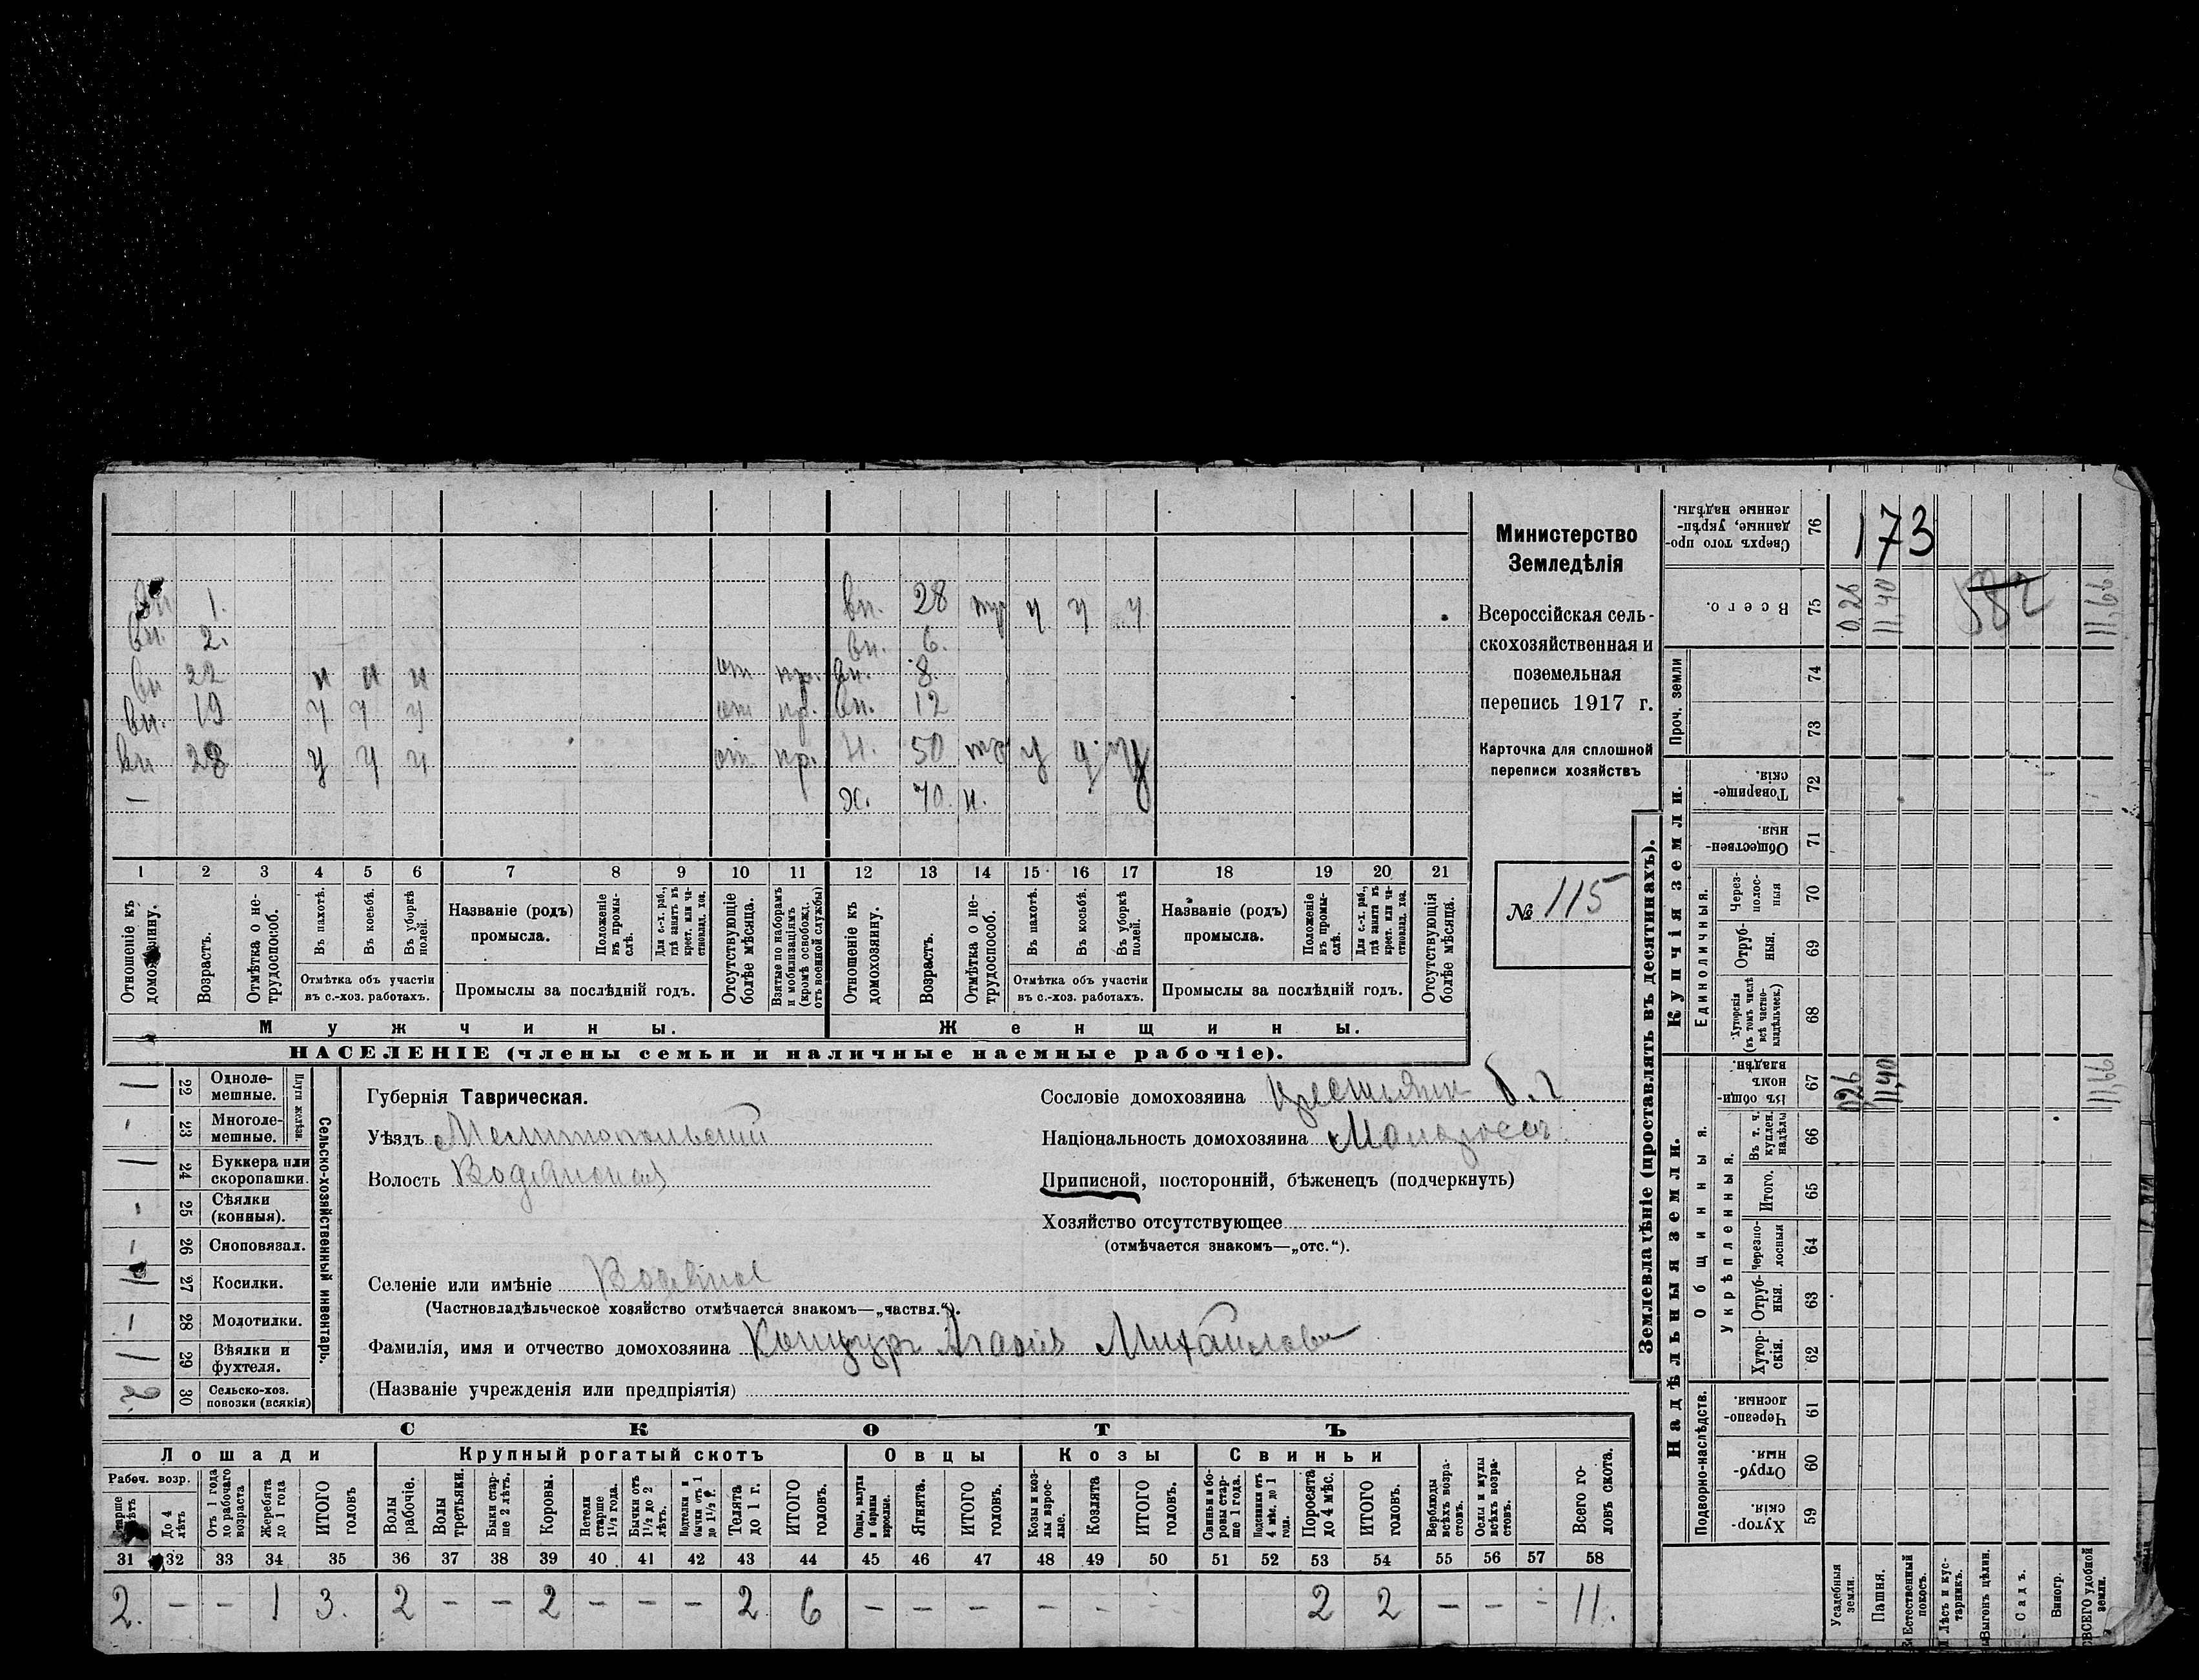 вн 1. вн. 28 тр ч ч ч
вн. 2. вн. 6.
вн 22 ч ч ч от пр. вн. 8.
вн. 19 ч ч ч от пр. вн. 12
вн 28 ч ч ч от пр. 50 ч ч
— х. 70. н.
1 2 3 4 5 6 7 8 9 10 11 12 13 14 15 16 17 18 19 20 21
Отношеніе къ домохозяину.
Возрастъ.
Отмѣтка о не-трудоспособ.
Въ пахотѣ.
Въ косьбѣ.
Въ уборкѣ полей.
Отмѣтка объ участіи
въ с.-хоз. работахъ.
Названіе (родъ)
промысла.
Положеніе въ промы-слѣ.
Для с.-х. раб., гдѣ занятъ въ крест. или ча-стновлад. хоз.
Промыслы за послѣдній годъ.
Отсутствующіе болѣе мѣсяца.
Взятые по наборамъ и мобилизаціямъ (кромѣ освобожд. отъ военной службы)
Отношеніе къ домохозяину.
Возрастъ.
Отмѣтка о не-трудоспособ.
Въ пахотѣ.
Въ косьбѣ.
Въ уборкѣ полей.
Отмѣтка объ участіи
въ с.-хоз. работахъ.
Названіе (родъ)
промысла.
Положеніе въ промы-слѣ.
Для с.-х. раб., гдѣ занята въ крест. или ча-стновлад. хоз.
Промыслы за послѣдній годъ.
Отсутствующія болѣе мѣсяца.
Мужчины. Женщины.
НАСЕЛЕНІЕ (члены семьи и наличные наемные рабочіе).
Министерство
Земледѣлія
Всероссійская сель-
скохозяйственная и
поземельная
перепись 1917 г.
Карточка для сплошной
переписи хозяйствъ
№ 115
| 22 Одноле-мешные.
23 Многоле-мешные.
Плуги желѣзн.
| 24 Буккера или скоропашки.
25 Сѣялки (конныя).
26 Сноповязал.
27 Косилки.
28 Молотилки.
| 29 Вѣялки и фухтеля.
2 30 Сельско-хоз. повозки (всякія)
Сельско-хозяйственный инвентарь.
Губернія Таврическая.
Уѣздъ Мелитопольский
Волость Водянская
Селеніе или имѣніе
(Частновладѣльческое хозяйство отмѣчается знакомъ—„частвл.“).
Фамилія, имя и отчество домохозяина Михайлова
(Названіе учрежденія или предпріятія)
Сословіе домохозяина
Національность домохозяина Малоросс.
Приписной, посторонній, бѣженецъ (подчеркнуть)
Хозяйство отсутствующее
(отмѣчается знакомъ—„отс.“).
СКОТЪ
Лошади Крупный рогатый скотъ Овцы Козы Свиньи
Рабоч. возр.
До 4 лѣтъ
Отъ 1 года до рабочаго возраста
Жеребята до 1 года
ИТОГО головъ
Волы рабочіе.
Волы третьяки.
Быки стар-ше 2 лѣтъ.
Коровы.
Нетели старше 1½ года.
Бычки отъ 1½ до 2 лѣтъ.
Подтелки и бычки отъ 1 до 1½ г.
Телята до 1 г.
ИТОГО головъ.
Овцы, валухи и бараны взрослые.
Ягнята.
ИТОГО головъ.
Козы и коз-лы взрос-лые.
Козлята
ИТОГО головъ.
Свиньи и бо-ровы стар-ше 1 года.
Подсвинки отъ 4 мѣс. до 1 года.
Поросята до 4 мѣс.
ИТОГО головъ.
Верблюды всѣхъ возра-стовъ.
Ослы и мулы всѣхъ возра-стовъ.
Всего го-ловъ скота.
31 32 33 34 35 36 37 38 39 40 41 42 43 44 45 46 47 48 49 50 51 52 53 54 55 56 57 58
2. – – 1 3. 2 – – 2 – – – 2 6 – – – – – – 2 2 – – – 11.
Землевладѣніе (проставлять въ десятинахъ).
Надѣльныя земли. Купчія земли. Проч. земли
Подворно-наслѣдств. Общинныя. Укрѣпленныя. Единоличныя.
Сверхъ того про-данные, укрѣп-ленные надѣлы. 76 173
Всего. 75 0,26 11,40 582 11,66
74
73
Товарище-скія. 72
Обществен-ныя. 71
Через-полос-ныя 70
Отруб-ныя. 69
Хуторскія (въ томъ числѣ всѣ частно-владѣльческ.) 68
Въ общин-номъ владѣн. 67 0,26 11,40 11,66
Въ т. ч. куплен. надѣлы 66
Итого. 65
Черезпо-лосныя 64
Отруб-ныя. 63
Хутор-скія. 62
Черезпо-лосныя. 61
Отруб-ныя. 60
Хутор-скія. 59
Усадебныя земли.
Пашня.
Естественный покосъ.
Лѣсъ и кус-тарникъ.
Выгонъ цѣлин.
Садъ.
Виногр.
ВСЕГО удобной земли.